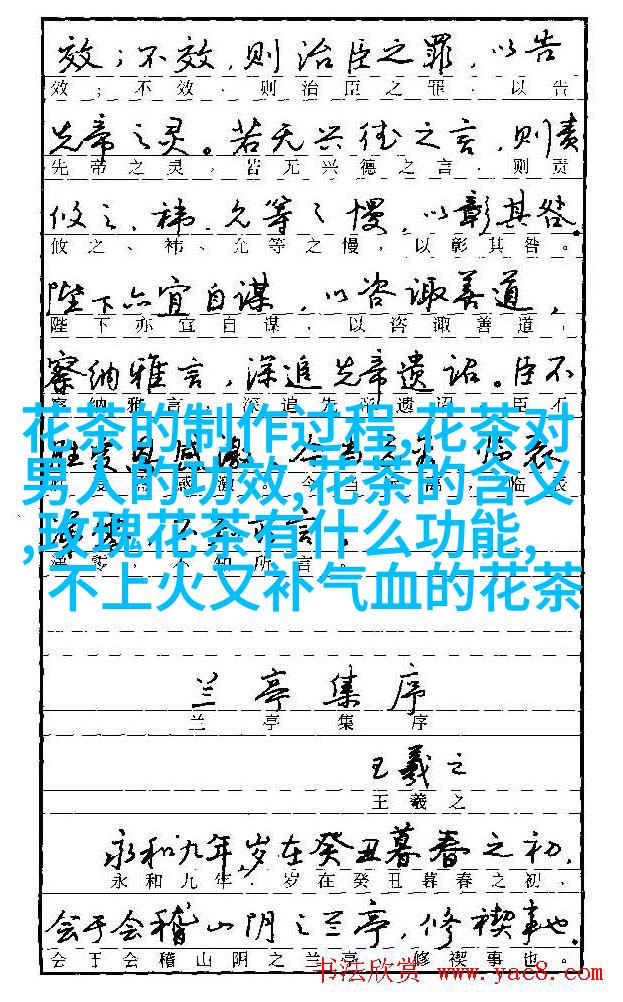 效；不效，则治臣之罪，以告
效；不效、则治臣之罪、以告
先帝之灵。若无兴德之言，则责
先帝之灵，若无兴德之言、则责
攸之、祎、允等之慢，以彰其咎。
攸之、祎、允等之慢，以彰其咎。
陛下亦宜自谋，以咨诹善道，
陛下亦宜自谋，以咨诹善道，
察纳雅言，深追先帝遗诏。臣不
花茶的制作过程,花茶对
男人的功效,花茶的含义
,玫瑰花茶有什么功能,
不上火又补气血的花茶
临表
不知所言。
兰亭集序
兰亭集序
王羲之
王羲之
永和九年，岁在癸丑暮春之初，
永和九年．岁在癸丑暮春之初、
会于会稽山阴之兰亭，修禊事也。
会于会稽山阴之兰亭 修禊事也。
书法欣赏 www.yac8.com